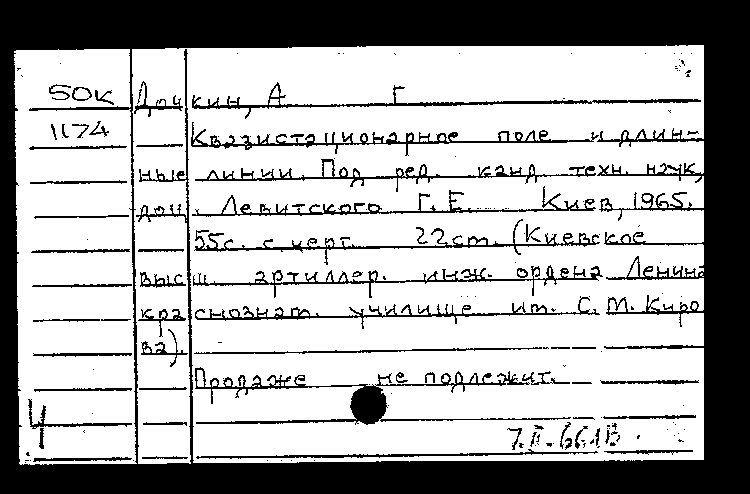 50К Дочкин, А Г
1174 Квазистационарное поле и длин-
ные линии. Под ред. канд. техн. наук,
доц. Левитского Г.Е. Киев, 1965.
55с. с черт. 22см. (Киевское
высш. артиллер. инж. ордена Ленина
краснознам. училище им. С.М. Киро
ва).
Продаже не подлежит.
4
7.II.66.